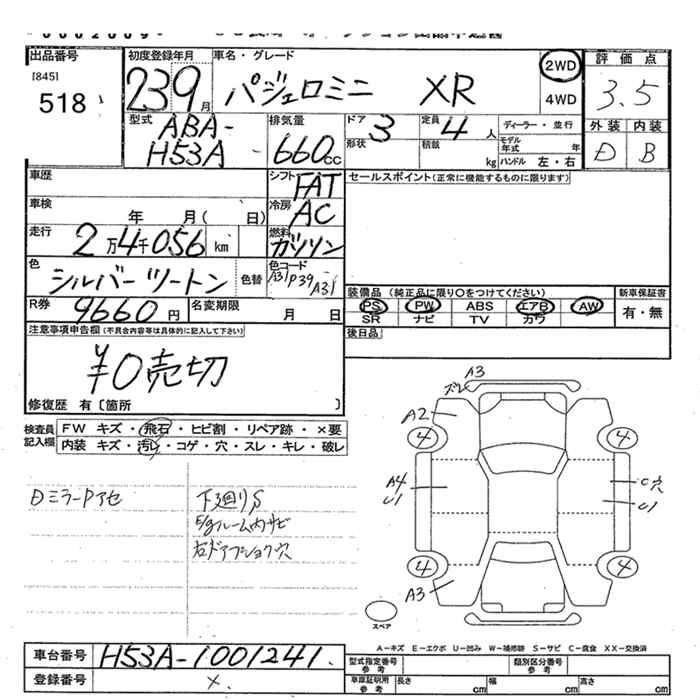 出品番号
[845]
518
初度登録年月
23 9月
車名・グレード
パジェロミニ XR
2WD
4WD
評価点
3.5
外装 内装
D B
型式
ABA-
H53A
排気量
660cc
ドア 3
形状
定員 4人
積載 kg
ディーラー・並行
モデル年式 年
ハンドル 左・右
車歴
シフト FAT
セールスポイント(正常に機能するものに限ります)
車検 年 月( 日)
冷房 AC
走行 2万4千056km
燃料 ガソリン
色 シルバーツートン 色替
色コード
A31P39A31
装備品(純正品に限り○をつけてください)
新車保証書
PS PW ABS エアB AW
SR ナビ TV カワ
有・無
R券 9660円
名変期限 月 日
後日品
注意事項申告欄(不具合内容等は具体的に記入して下さい)
¥0売切
修復歴 有〔箇所 〕
検査員記入欄
FW キズ・飛石・ヒビ割・リペア跡・×要
内装 キズ・汚レ・コゲ・穴・スレ・キレ・破レ
DミラーPアセ
下廻りS
E/gルーム内サビ
右ドアプショク穴
A3
ズレ
A2
4 4
A4
U1
C穴
U1
4 4
A3
スペア
A-キズ E-エクボ U-凹み W-補修跡 S-サビ C-腐食 XX-交換済
車台番号 H53A-1001241
登録番号 ×
型式指定番号 参考
類別区分番号 参考
車庫証明用 参考 長さ cm 幅 cm 高さ cm